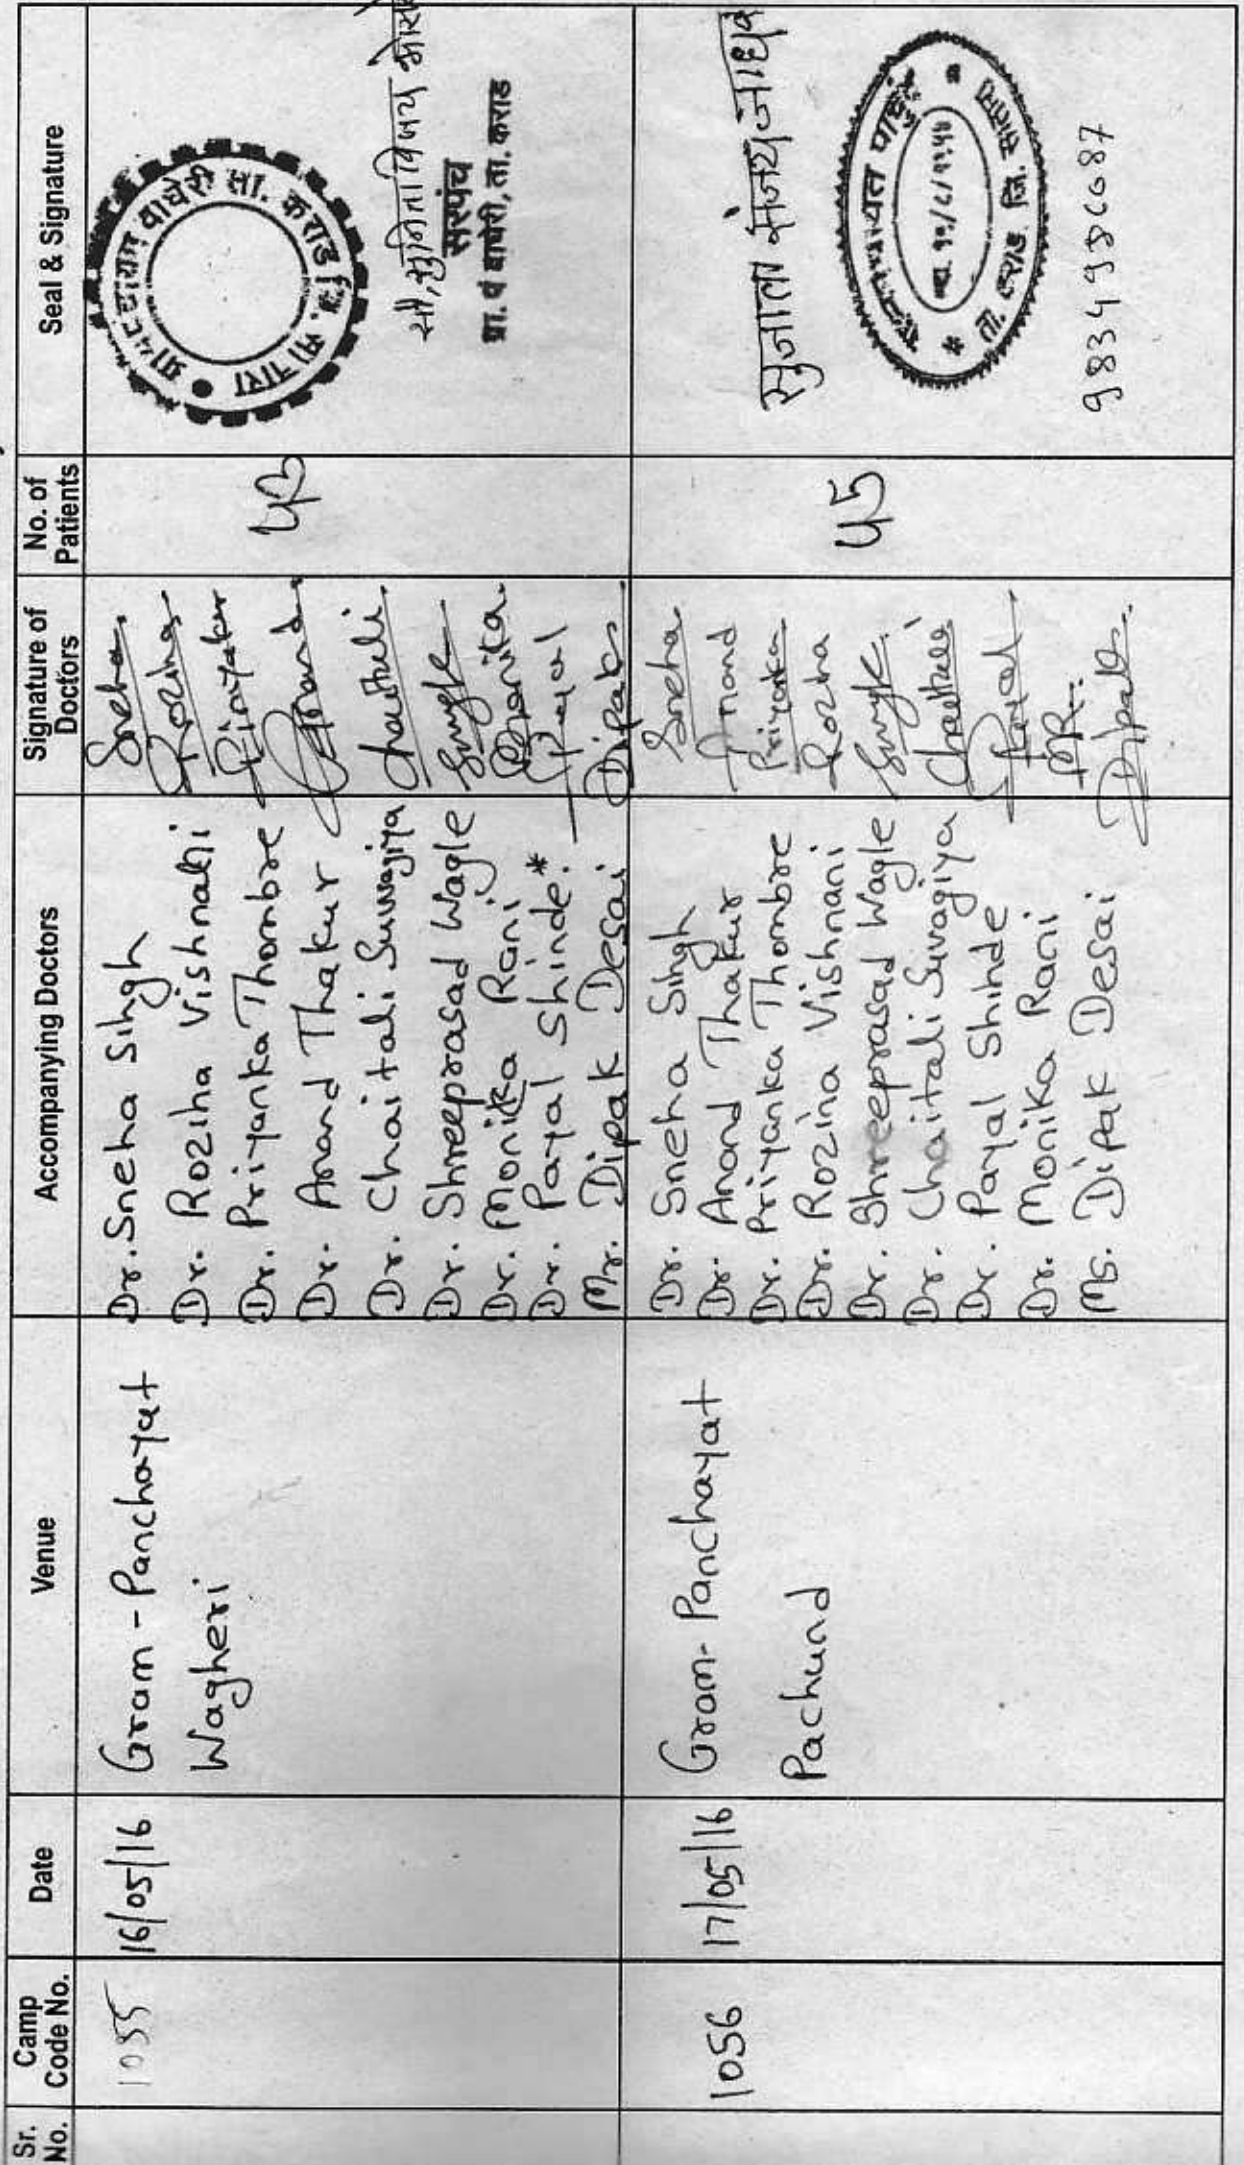 Sr. No.
Camp Code No.
Date
Venue
Accompanying Doctors
Signature of Doctors
No. of Patients
Seal & Signature
1055
16/05/16
Gram-Panchayat
Wagheri
Dr. Sneha Singh
Dr. Rozina Vishnani
Dr. Priyanka Thombre
Dr. Anand Thakur
Dr. Chaitali Suvagiya
Dr. Shreeprasad Wagle
Dr. Monika Rani
Dr. Payal Shinde*
Mr. Dipak Desai
Sneha
Rozina
Priyanka
Anand
Chaitali
Monika
Payal
Dipak
वाघेरी ता. कराड जि. सातारा
सरपंच
ग्रा. पं वाघेरी, ता. कराड
1056
17/05/16
Gram-Panchayat
Pachund
Dr. Sneha Singh
Dr. Anand Thakur
Dr. Priyanka Thombre
Dr. Rozina Vishnani
Dr. Shreeprasad Wagle
Dr. Chaitali Suvagiya
Dr. Payal Shinde
Dr. Monika Rani
Ms. Dipak Desai
Sneha
Anand
Priyanka
Rozina
Chaitali
Payal
MR.
Dipak
45
सुजाता
जाधव